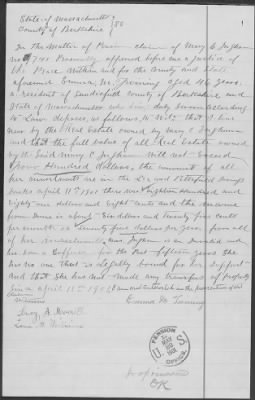 State of Massachusetts
County of Berkshire } SS
In The Matter of Pension claim of Mary E. Ingham
No 7 Personally appeared before me a Justice of
the Peace Within and for the County and State
aforesaid Emma M. Twining aged 46 years,
a resident of Sandisfield County of Berkshire and
State of Massachusetts who being duly sworn according
to Law deposes as follows, to Wit: That I live
near by the Real Estate owned by Mary E Ingham
and that the full value of all Real Estate owned
by the Said Mary E Ingham Will not Exceed
Hundred Dollars, the amount of all
her investments are in the Lee and Pittsfield Savings
banks April 11th 1901 there was Eighteen Hundred and
Eighty one dollars and Eight cents and the income
from Same is about Six dollars and twenty five cents
per month or Seventy five dollars per year, from all
of her investments, Mrs. Ingham is an Invalid and
has been a Sufferer for the Past fifteen years She
has no one that is legally bound for her Support
and that She has not made any transfer of property
Since April 11th I am not interested in the prosecution of this
claim
Witnesses
Emma M. Twining
A. Merrill
Williams
PENSION
U. S.
MAY
1901
OFFICE
OK